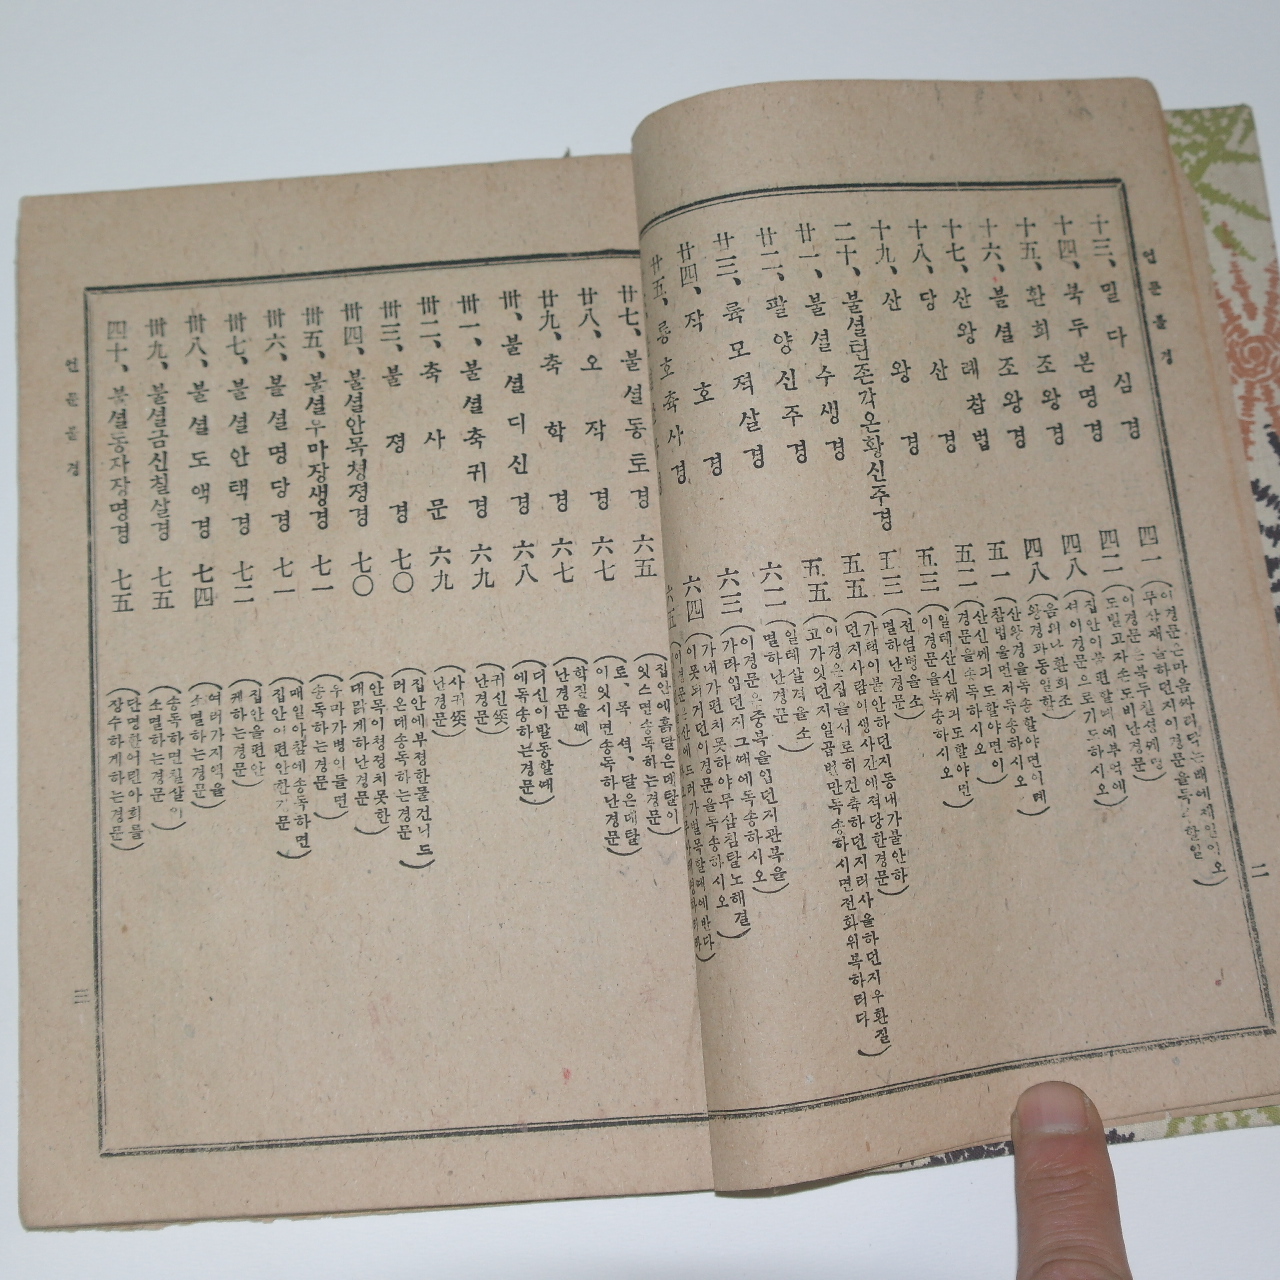 언문불경
二
十三、밀다심경 四一 (이경문은마음싸려 무삼재를하던지이경문을독
十四、북두본명경 四二 (이경문는북두칠성께명 도빌고자손도비난경문)
十五、환희조왕경 四八 (집안이불편할때에부억에 셔이경문으로기도하시오)
十六、불셜조왕경 四八 (음위난환희조 왕경과동일함)
十七、산왕례참법 五一 (산왕경을독송할야면이례 참법을먼저독송하시오)
十八、당산경 五二 (산신께긔도할야면이 경문을송독하시오)
十九、산왕경 五三 (일테산신께긔도할야면 이경문을독송하시오)
二十、불셜텬존각온황신주경 五三 (전염병을소 멸하난경문)
廿一、불셜수생경 五五 (가택이불안하던지동내가불안하 던지사람이생사간에적당한경문)
廿二、팔양신주경 五五 (이경은집을새로히건축하던지려사을하던지우환질 고가잇던지일곱번만독송하시면전화위복하리다)
廿三、륙모적살경 六二 (일테살격을소 멸하난경문)
廿四、작호경 六三 (이경문은중복을입던지관복을 가라입던지그때에독송하시오)
廿五、룡호축사경 六四 (가내가편치못하야무삼침탈노해결 이못되거던이경문을독송하시오)
廿七、불셜동토경 六五 (집안에흙달은데탈이 잇스면송독하는경문)
廿八、오작경 六七 (토、목、셕、달은데탈 이잇시면송독하난경문)
廿九、축학경 六七 (학질을떼 난경문)
卅、불셜디신경 六八 (디신이발동할때 에독송하는경문)
卅一、불셜축귀경 六九 (귀신쫏 난경문)
卅二、축사문 六九 (사귀쫏 난경문)
卅三、불졍경 七〇 (집안에부정한물건니드 러온데송독하는경문)
卅四、불셜안목쳥졍경 七〇 (안목이청정치못한 대맑게하난경문)
卅五、불셜우마장생경 七一 (우마가병이들면 송독하는경문)
卅六、불셜명당경 七一 (매일아참에송독하면 집안이편안한경문)
卅七、불셜안택경 七二 (집안을편안 케하는경문)
卅八、불셜도액경 七四 (여러가지액을 소멸하는경문)
卅九、불셜금신칠살경 七五 (송독하면칠살이 소멸하는경문)
四十、불셜동자장명경 七五 (단명한어린아희를 장수하게하는경문)
언문불경
三